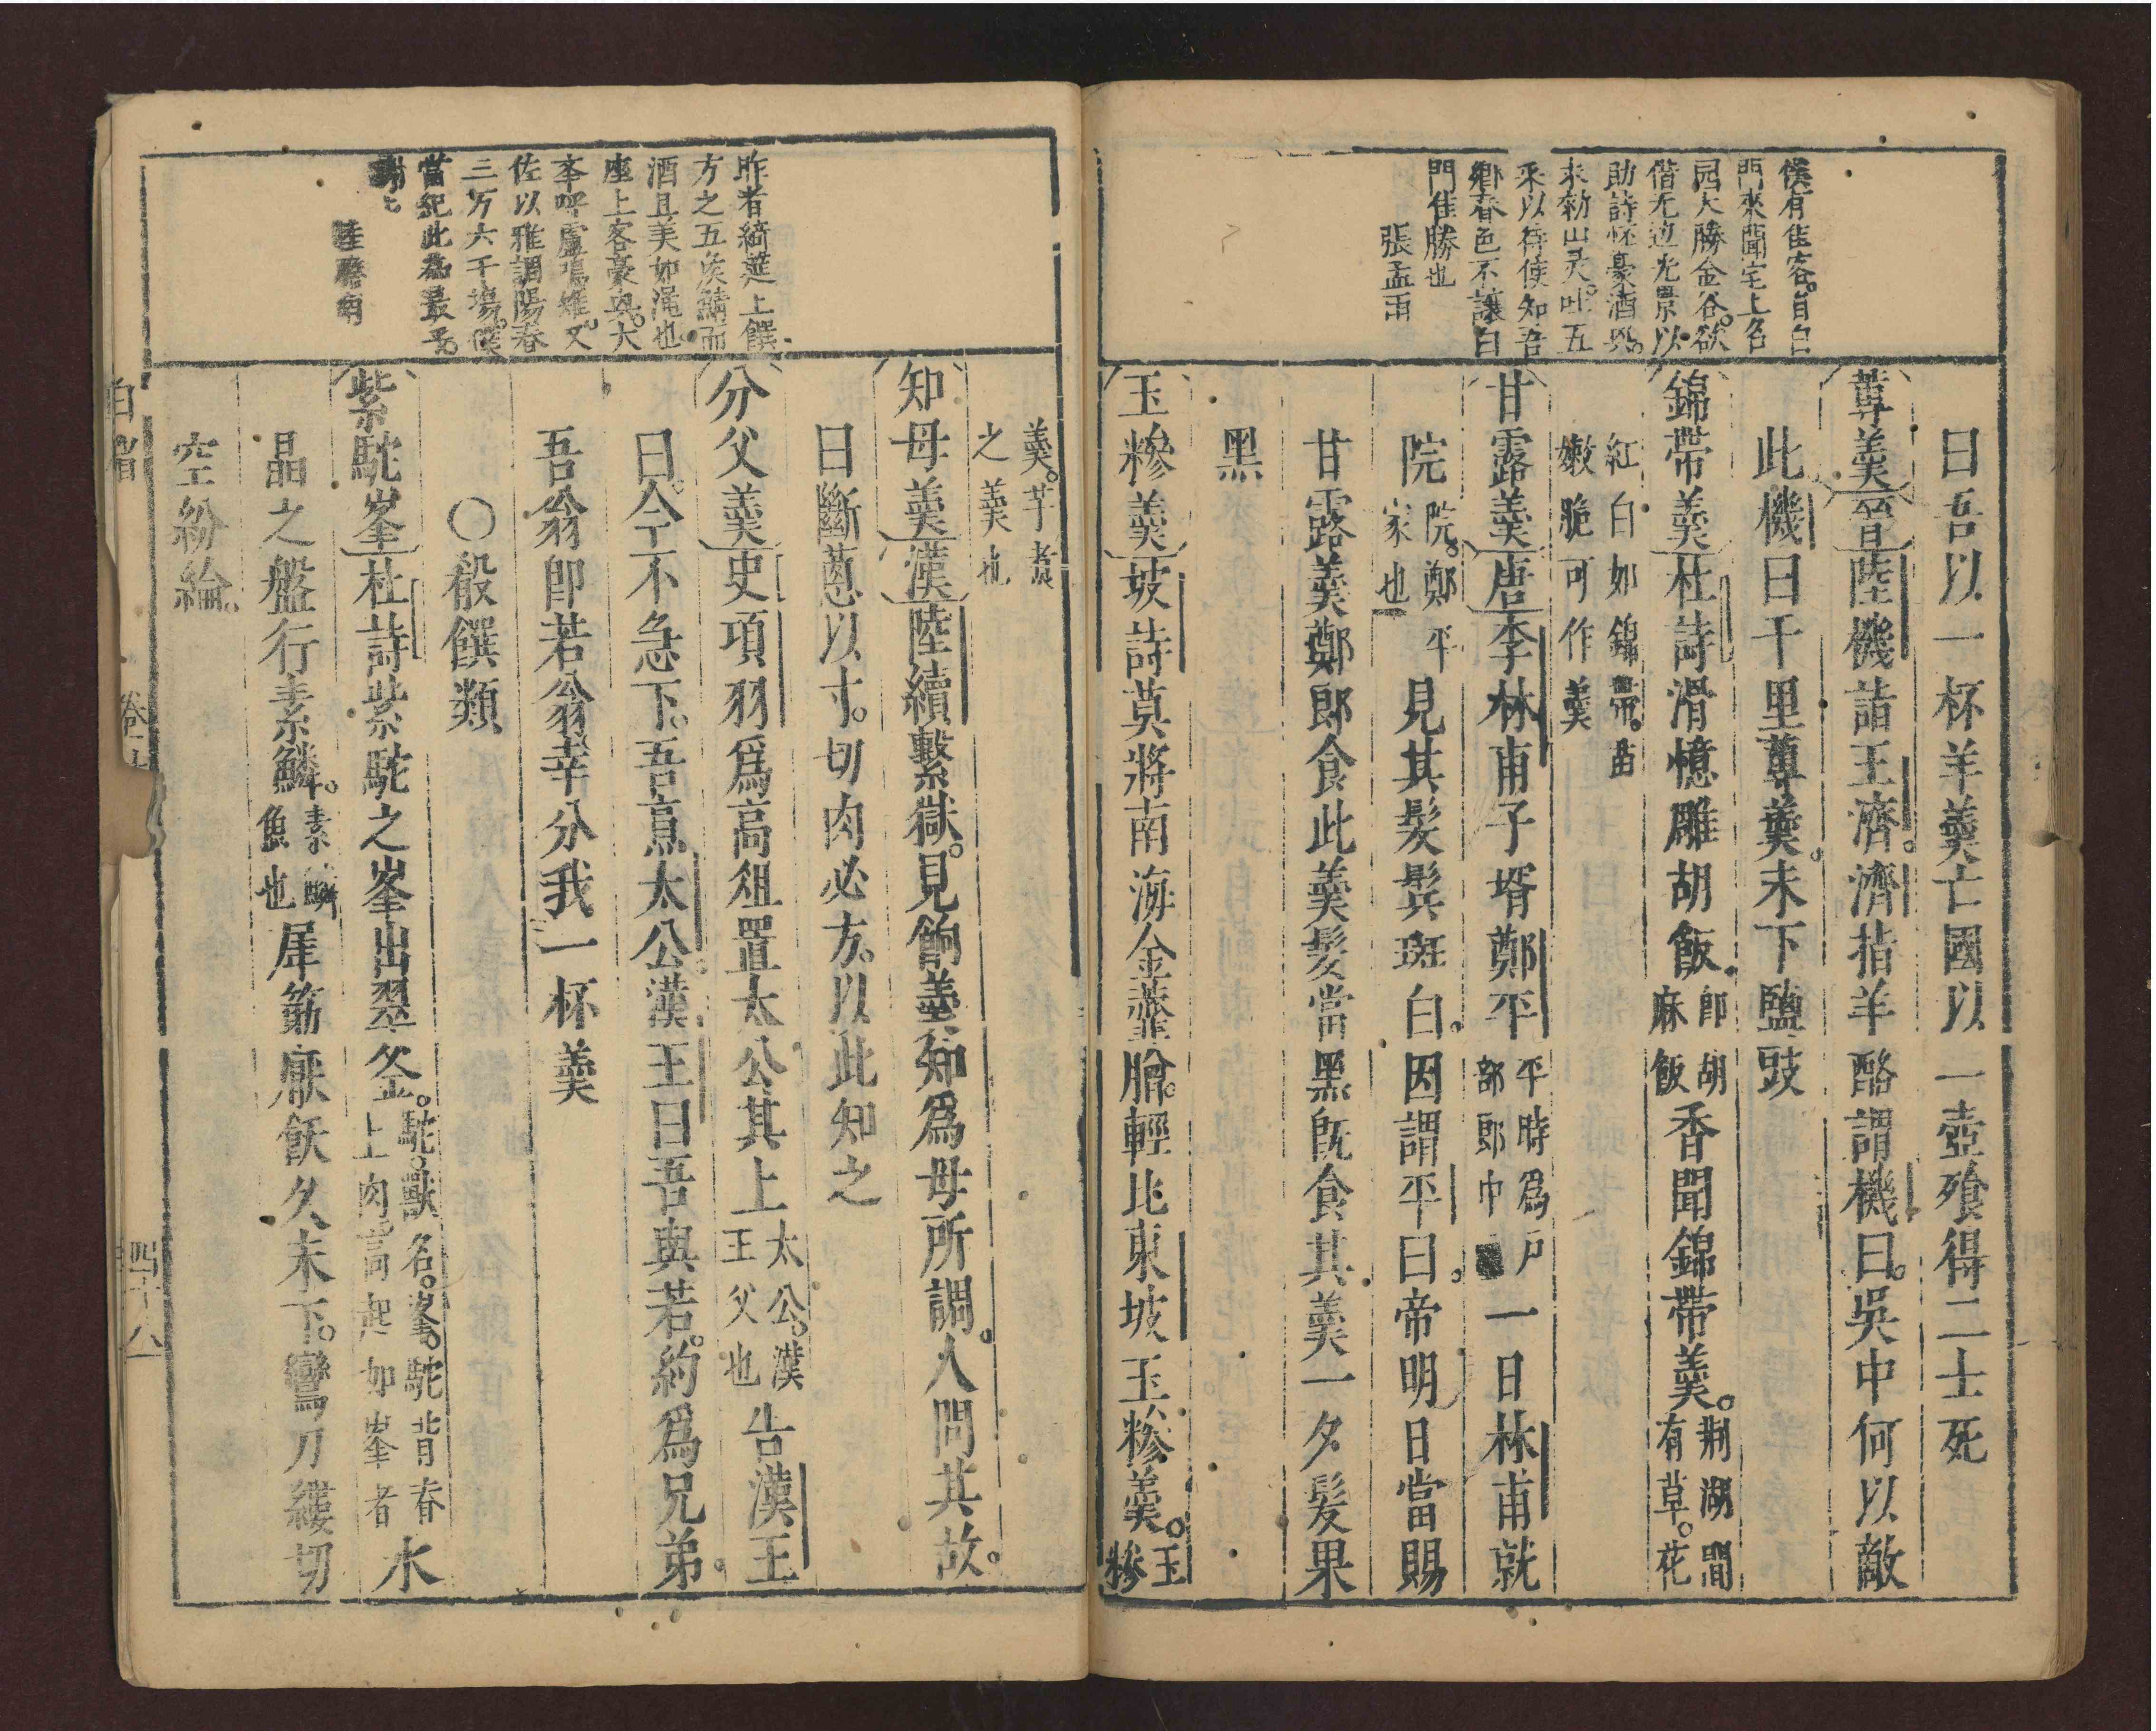 僕有佳客自白
門來聞宅上名
园大勝金谷欲
借无边光景以
助詩怀豪酒興
求勑山灵吐五
采以待使知吾
鄉春色不讓白
門佳勝也
張孟雨
曰吾以一杯羊羹亡國以一壺飱得二士死
蓴羹晉陸機詣王濟濟指羊酪謂機曰吳中何以敵
此機曰千里蓴羹未下鹽豉
錦帶羹杜詩滑憶雕胡飯即胡麻飯香聞錦帶羹荆湖間有草花
紅白如錦帶苗嫩脆可作羹
甘露羹唐李林甫子壻鄭平平時爲戶部郎中一日林甫就
院院鄭平家也見其髮鬂斑白因謂平曰帝明日當賜
甘露羹鄭郎食此羹髮當黑旣食其羹一夕髮果
黑
玉糝羹坡詩莫將南海金虀膾輕比東坡玉糝羹玉糝
昨者綺莚上饌
方之五矦鯖而
酒且美如渑也
座上客豪興大
李呼盧喝雉又
佐以雅調陽春
三万六千塲僕
當紀此爲最乎
謝七
羹芋煑之羹也
知母羹漢陸續繫獄見餉羹知爲母所調人問其故
曰斷蔥以寸切肉必方以此知之
分父羹史項羽爲高俎置太公其上太公漢王父也告漢王
曰今不急下吾亯太公漢王曰吾與若約爲兄弟
吾翁卽若翁幸分我一杯羹
〇殽饌類
紫駝峯杜詩紫駝之峯出翠釜駝獸名峯駝背脊上肉高起如峯者水
晶之盤行素鱗素鱗魚也犀筯厭飫久未下鸞刀縷切
空紛綸
四十八